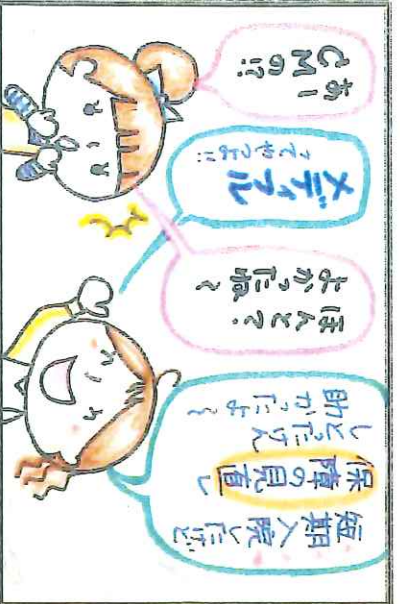 短期入院したけど
保障の見直し
しとったけん
助かったよ～
ほんと?
よかったね～
メディフル
ってやつよ!!
あー
CMの!?